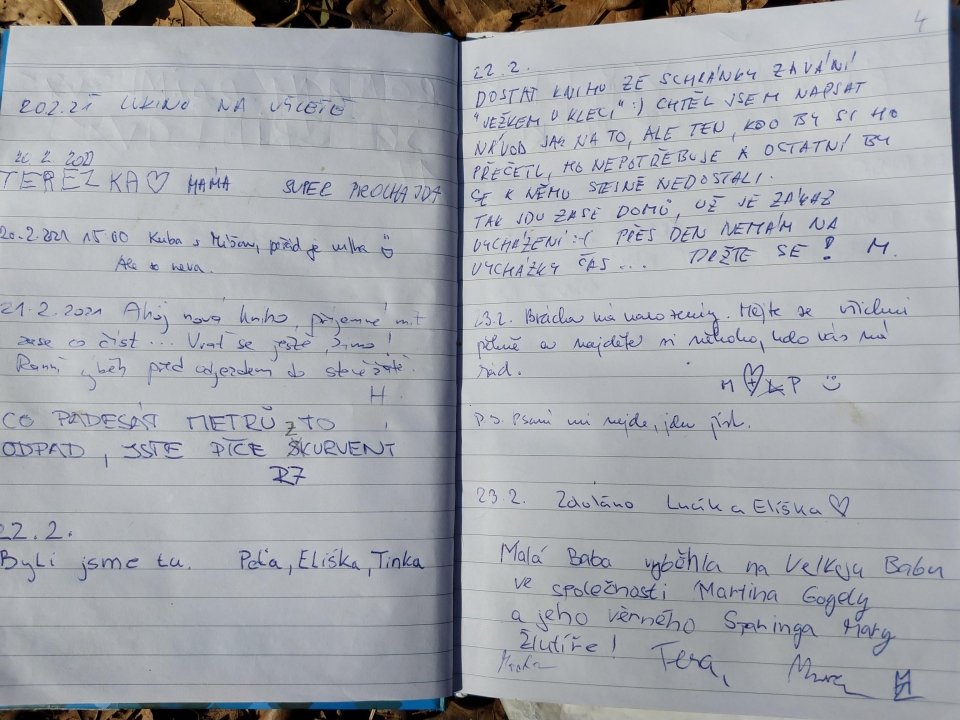 20.2.21 UKINO NA VÝLETĚ
20 2 2021
TEREZKA♡ MÁMA SUPER PROCHAJDA
20.2.2021 15 00 Kuba s Míšou, pořád je mlha
Ale to neva.
21.2.2021 Ahoj nová kniho, příjemné mít
zase co číst... Vrať se ještě, zimo!
Ranní výběh před odjezdem do
H.
CO PADESÁT METRŮ TO
ODPAD, JSTE PÍČE ZKURVENÝ
22.2.
Byli jsme tu. Peťa, Eliška, Tinka
4
22.2.
DOSTAT KNIHU ZE SCHRÁNKY ZAVÁNÍ
"JEŽKEM V KLECI" :) CHTĚL JSEM NAPSAT
NÁVOD JAK NA TO, ALE TEN, KDO BY SI HO
PŘEČETL, HO NEPOTŘEBUJE A OSTATNÍ BY
SE K NĚMU STEJNĚ NEDOSTALI.
TAK JDU ZASE DOMŮ, UŽ JE ZÁKAZ
VYCHÁZENÍ :( PŘES DEN NEMÁM NA
VYCHÁZKY ČAS... DRŽTE SE! M.
23.2. Brácha má narozeniny. Mějte se všichni
pěkně a najděte si někoho, kdo vás má
rád.
M + P
P.S. Psaní mi nejde, jdu pít.
23.2. Zdoláno Lucík a Eliška♡
Malá Baba vyběhla na Velkou Babu
ve společnosti Martina Gogely
a jeho věrného Sparinga Mary
Žlutíře!
Tera,